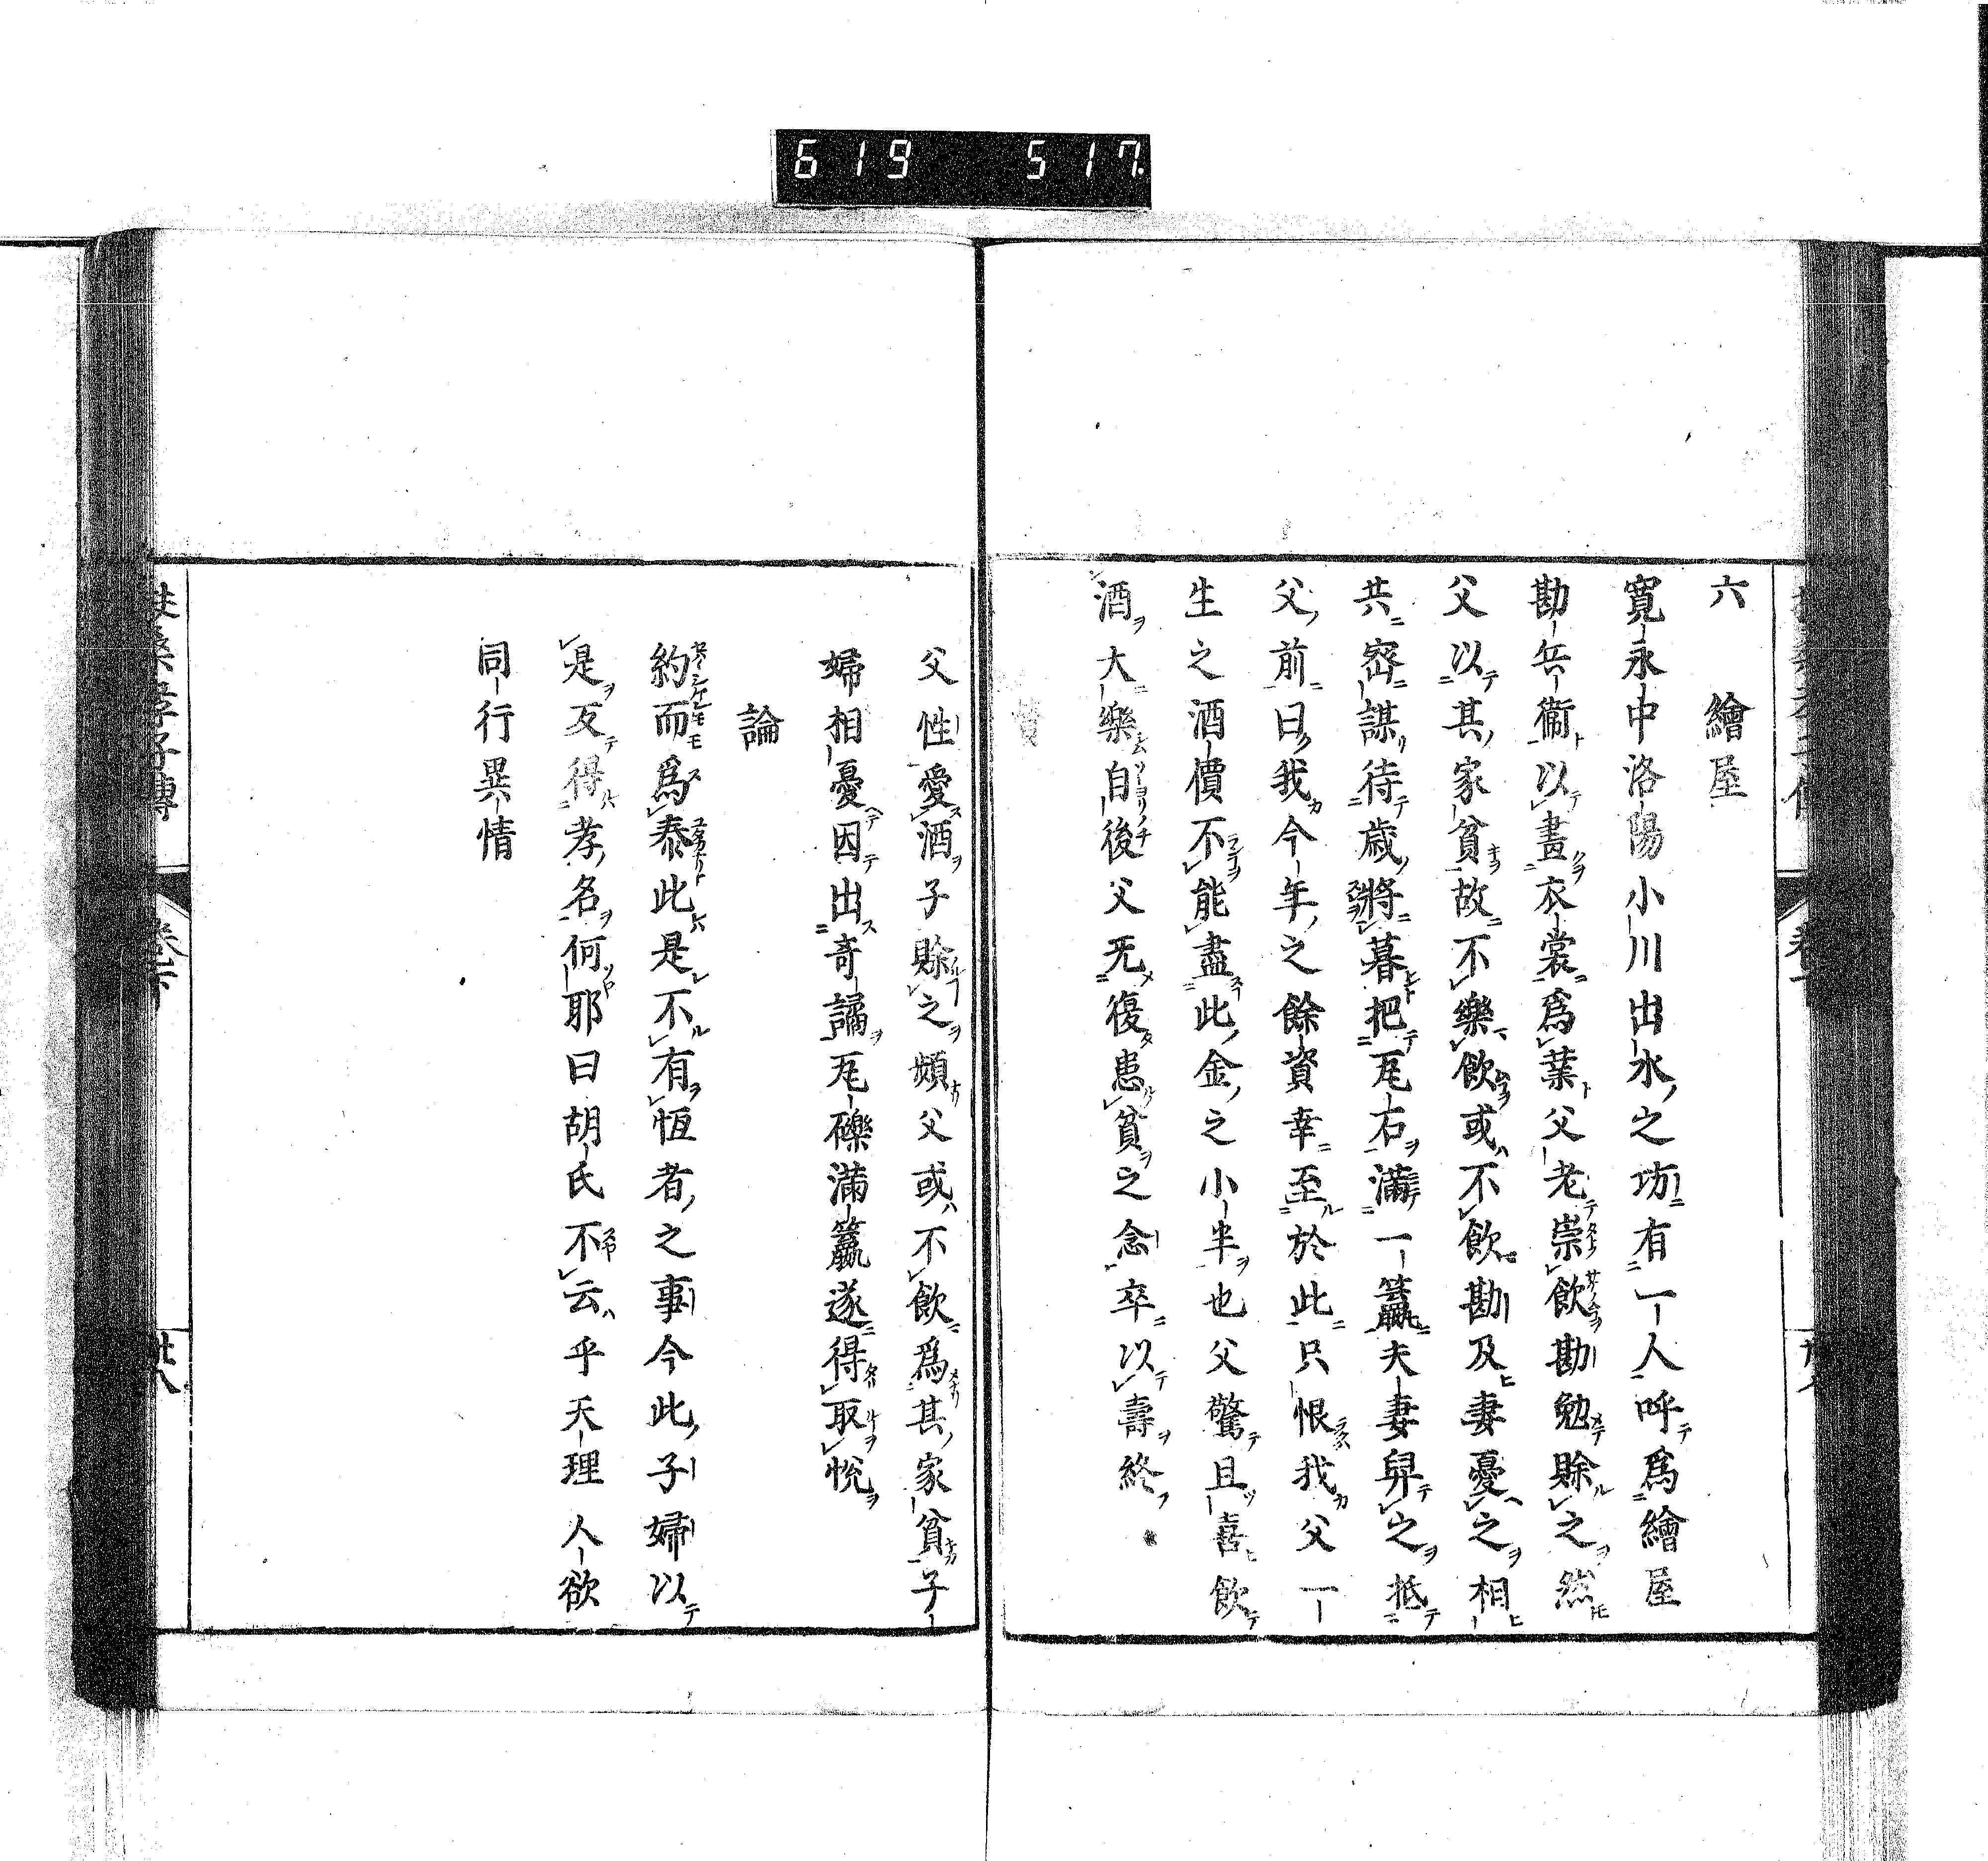 619 517
六 繪屋
寛永中洛陽小川出水之坊有一人呼爲繪屋
勘兵衞以畫衣裳爲業父老崇飮勘勉賖之然
父以其家貧故不樂飮或不飮勘及妻憂之相
共宻謀待歳將暮把瓦石滿一籯夫妻舁之抵
父前曰我今年之餘資幸至於此只恨我父一
生之酒價不能盡此金之小半也父驚且喜飮
酒大樂自後父无復患貧之念卒以壽終
賛
父性愛酒子賖之頻父或不飮爲其家貧子
婦相憂因出奇譎瓦礫滿籯遂得取悅
論
約而爲泰此是不有恆者之事今此子婦以
是反得孝名何耶曰胡氏不云乎天理人欲
同行異情
扶桑孝子傳
卷下
廿八